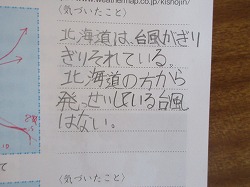 www.weathermap.co.jp/kishojin/
(気づいたこと)
北海道は、台風がぎり
ぎりそれている。
北海道の方から
発っせいしている台風
はない。
(気づいたこと)
て
10